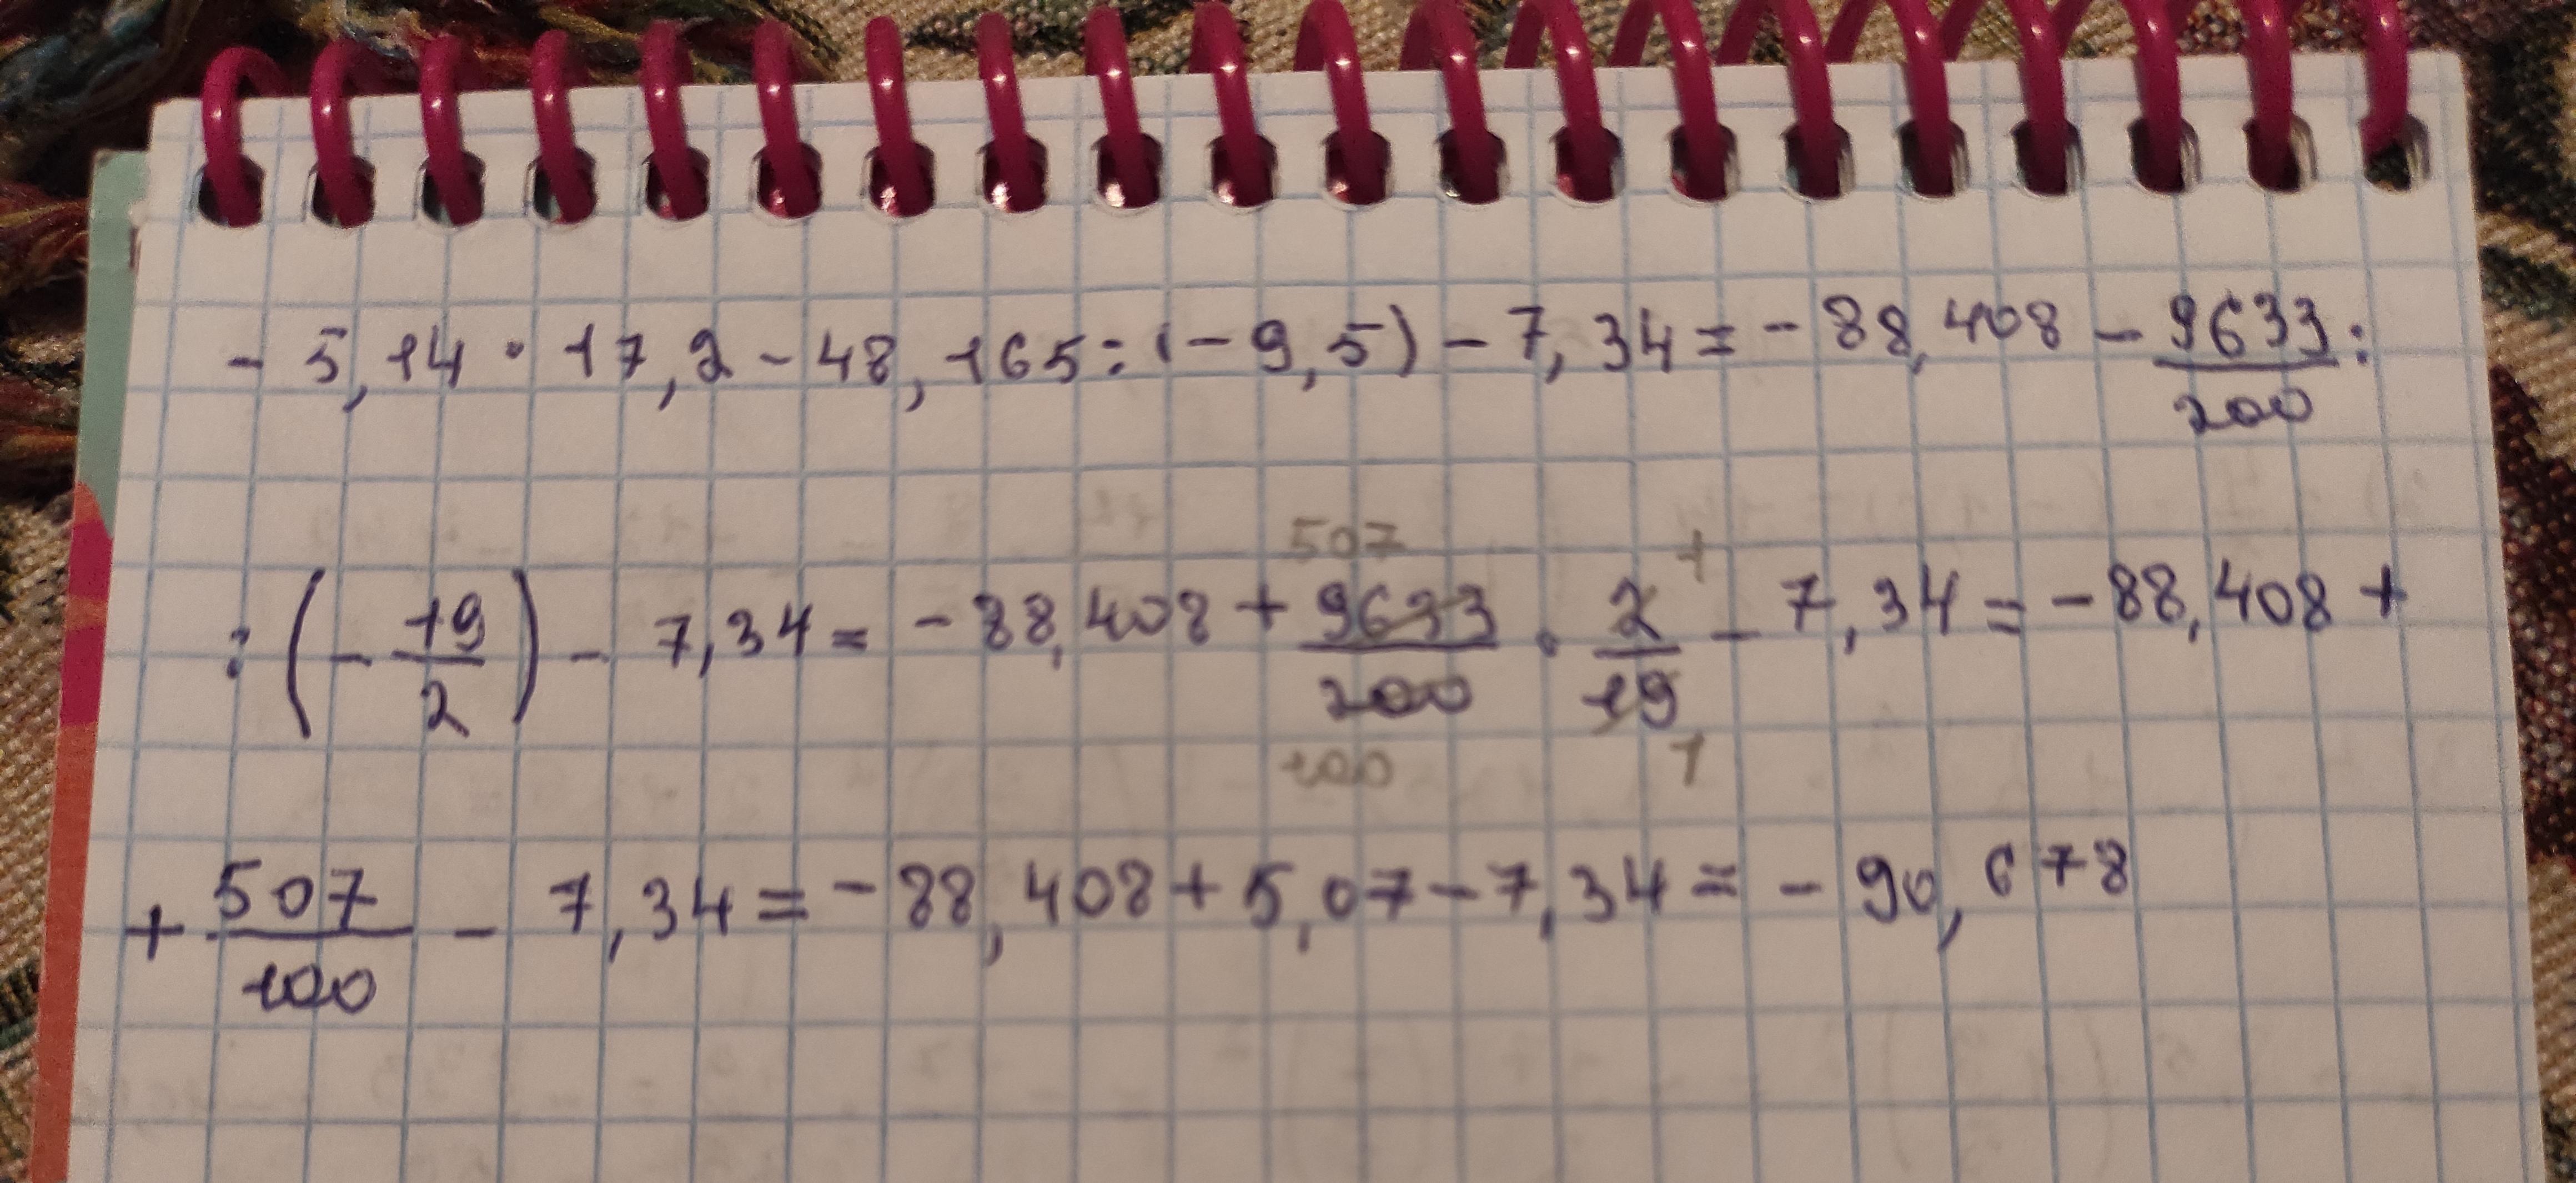 - 5,14 · 17,2 - 48,165 : (-9,5) - 7,34 = -88,408 - 9633/200 :
: (-19/2) - 7,34 = -88,408 + 9633/200 · 2/19 - 7,34 = -88,408 +
507 1
100 1
+ 507/100 - 7,34 = -88,408 + 5,07 - 7,34 = -90,678